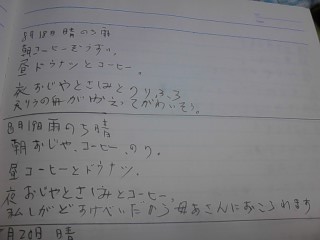 8月18日 晴のち雨
朝コーヒーもうすい。
昼ドウナンとコーヒー。
夜おじやとさしみとのり、
がかえってがわいそう。
8月19日 雨のち晴
朝おじや、コーヒー、のり。
昼コーヒーとドウナン。
夜おじやとさしみとコーヒー。
私しがどすけべいだから母あさんにおこられます
月20日 晴